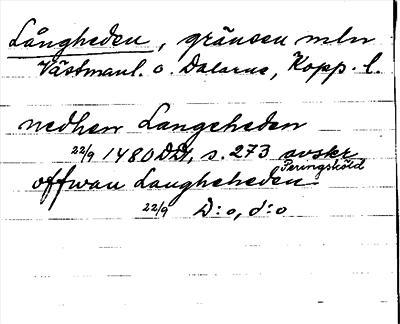 Långheden, gränsen mln
Västmanl. o. Dalarne, Kopp. l.
nedhen Langeheden
22/9 1480 DD, s. 273 avskr
Peringsköld
offwan Langheheden
22/9 D:o, d:o